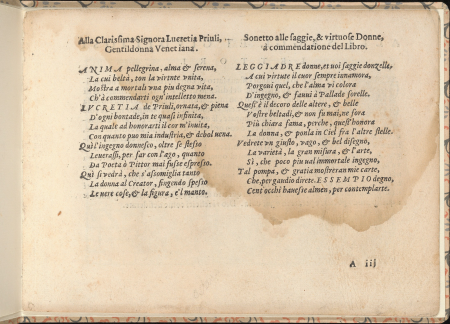 Alla Clarissima Signora Lucretia Priuli,
Gentildonna Venetiana.
ANIMA pellegrina, alma & serena,
La cui beltà, con la virtute vnita,
Mostra a mortali vna piu degna vita,
Ch'à commendarti ogn'intelletto mena.
LVCRETIA de Priuli, ornata, & piena
D'ogni bontade, in te quasi infinita,
La quale ad honorarti il cor m'inuita,
Con quanto puo mia industria, & debol uena.
Quì l'ingegno donnesco, oltre se stesso
Leuerassi, per far con l'ago, quanto
Da Poeta ò Pittor mai fusse espresso.
Quì si vedrà, che s'assomiglia tanto
La donna al Creator, fingendo spesso
Le uere cose, & la figura, e'l manto.
Sonetto alle saggie, & virtuose Donne,
à commendatione del Libro.
LEGGIADRE donne, et uoi saggie donzelle,
A cui virtute il cuor sempre innamora,
Porgoui quel, che l'alma vi colora
D'ingegno, & fauui à Pallade sorelle.
Quest'è il decoro delle altere, & belle
Vostre beltadi, & non fu mai, ne fora
Più chiara fama, perche, quest'honora
La donna, & ponla in Ciel fra l'altre stelle.
Vedrete vn giusto, vago, & bel disegno,
La varietà, la gran misura, & l'arte,
Sì, che poco piu ual immortale ingegno,
Tal pompa, & gratia mostreran mie carte,
Che, pergaudio direte. ESSEMPIO degno,
Cent'occhi hauesse almen, per contemplarte.
A iij